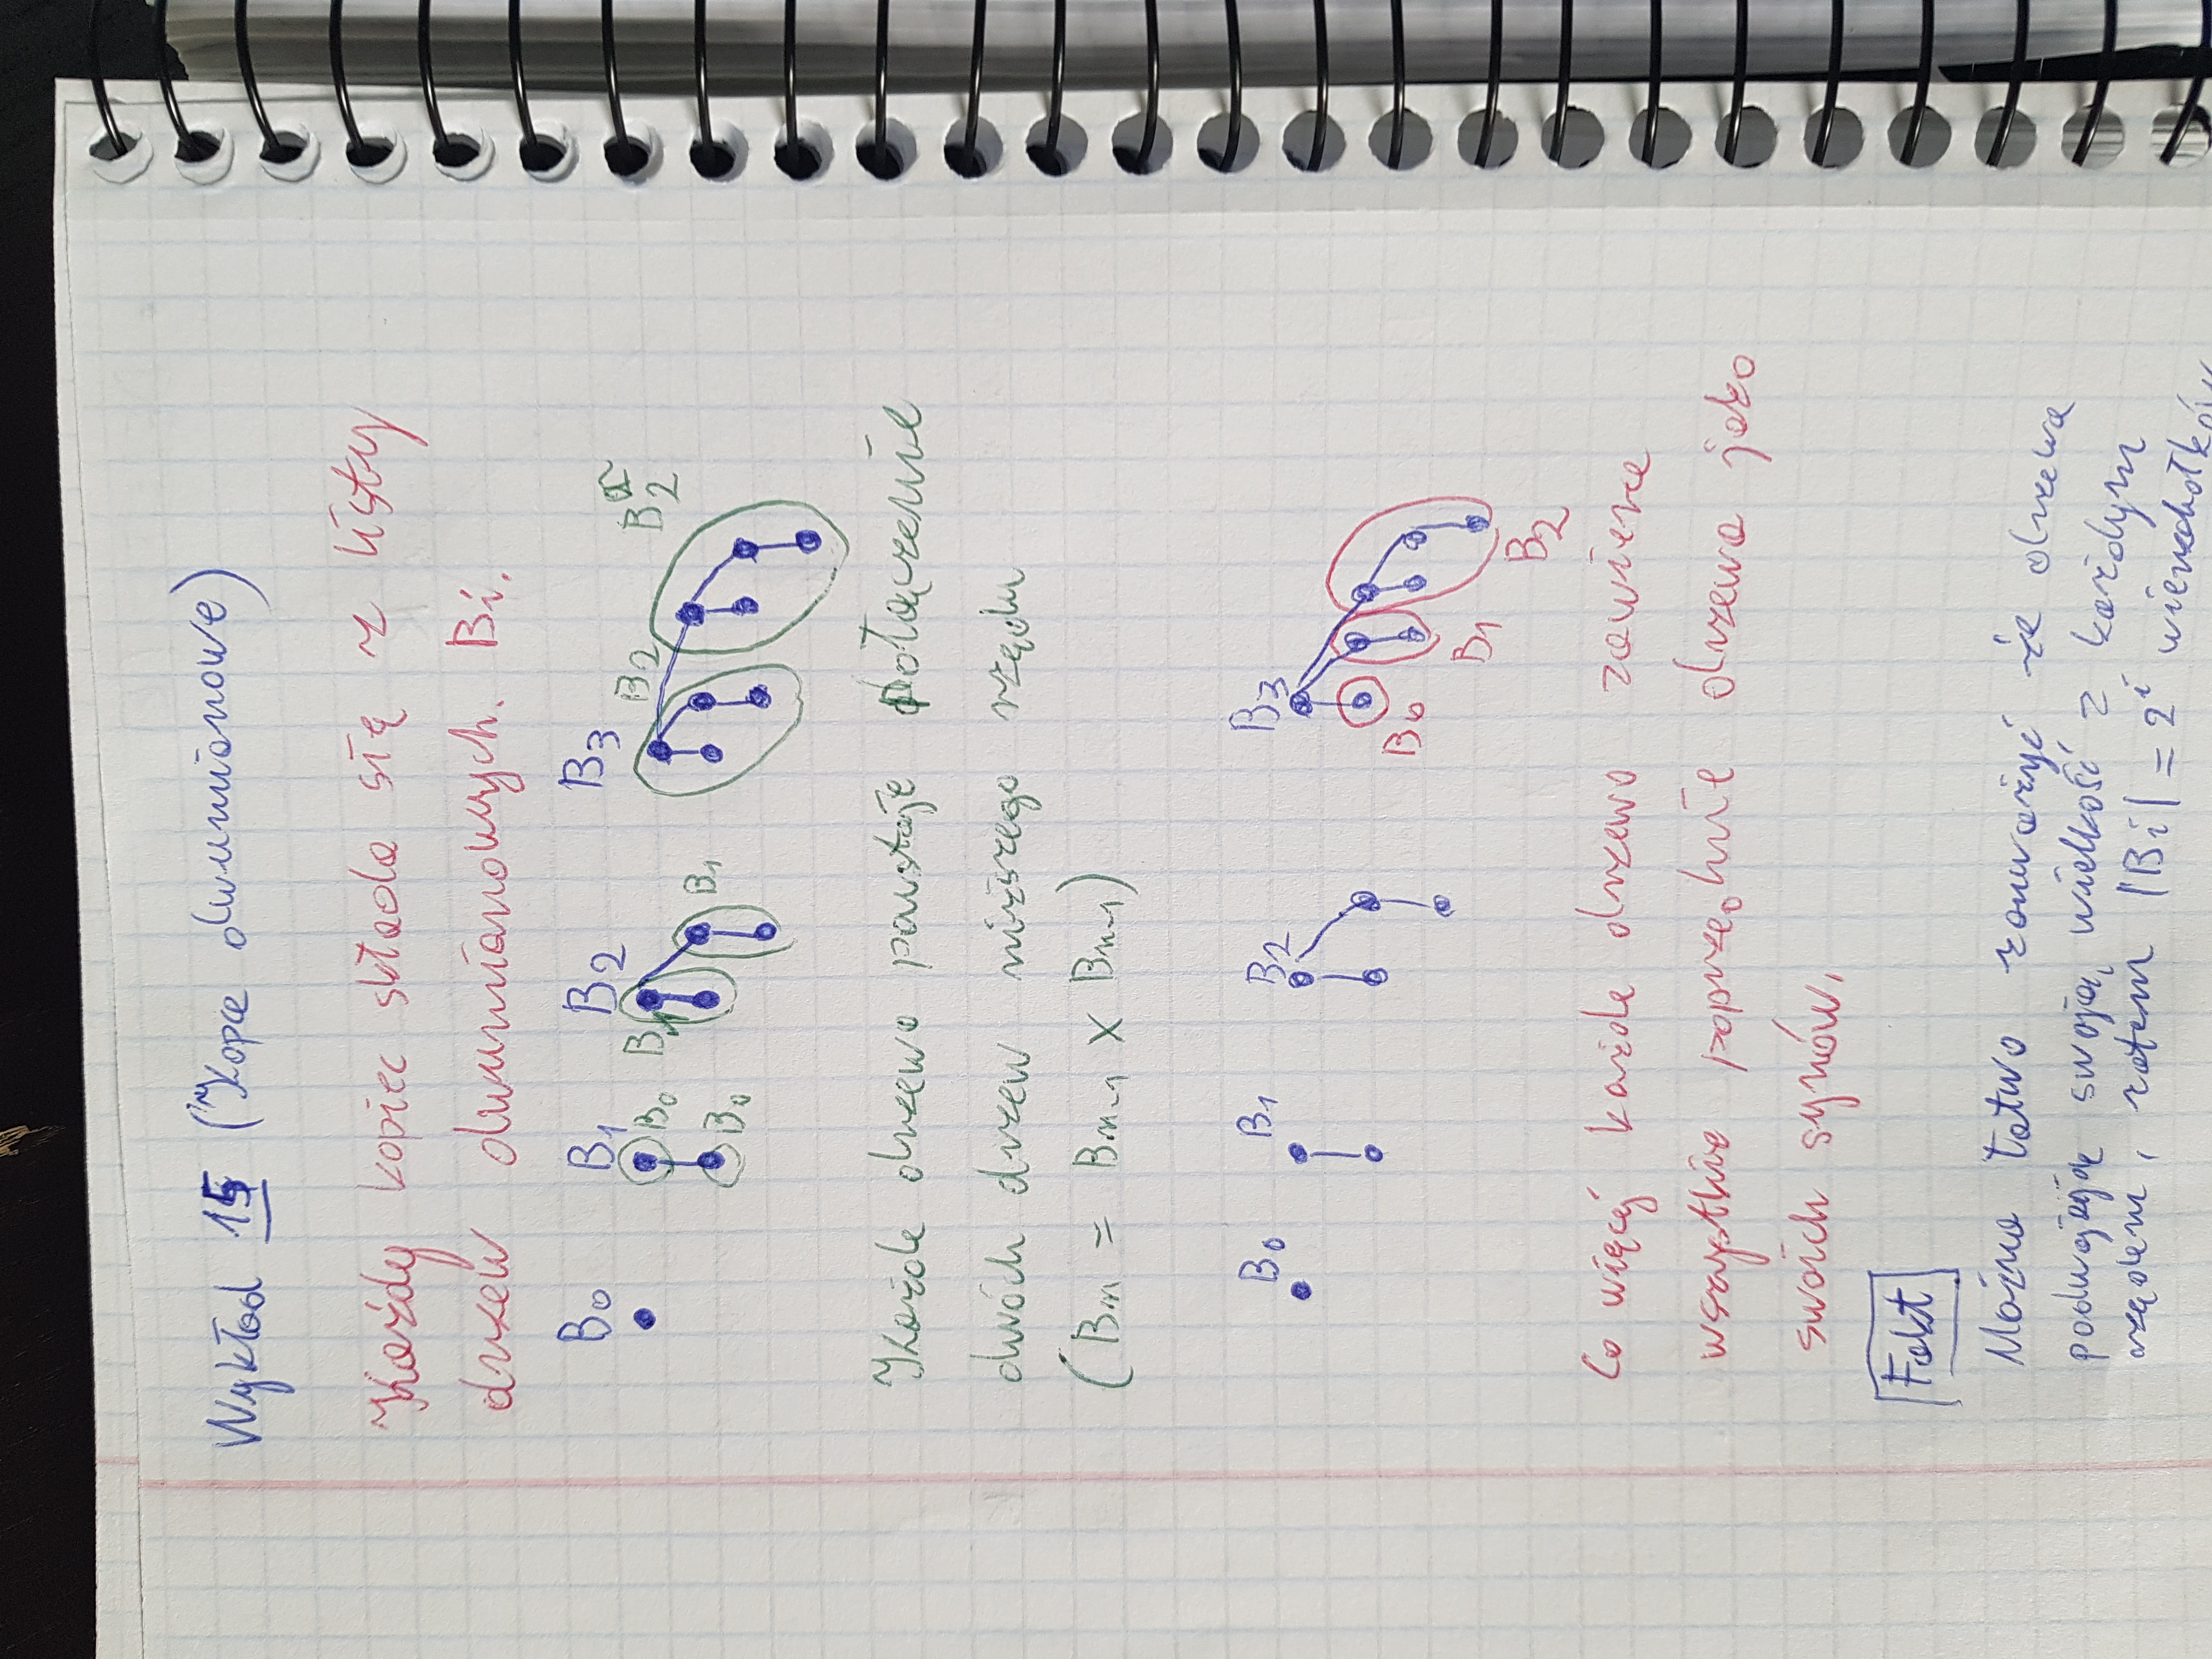 Wykład 15 (Kopce dwumianowe)
Każdy kopiec składa się z listy
drzew dwumianowych. Bi.
B0 B1 B2 B3
B0 B1 B2 B2
B0 B1
Każde drzewo powstaje połączenie
dwóch drzew niższego rzędu
(Bn = Bn-1 x Bn-1)
B0 B1 B2 B3
B0
B1
B2
Co więcej każde drzewo zawiera
wszystkie poprzednie drzewa jako
swoich synów.
Fakt
Można łatwo zauważyć że drzewa
podwajają swoją wielkość z każdym
rzędem, zatem |Bi| = 2^i wierzchołków